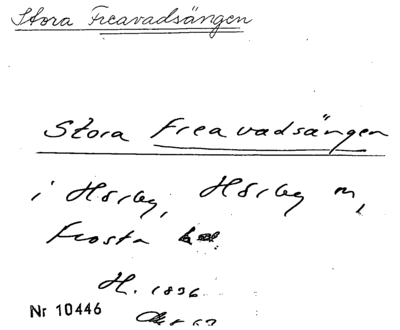 Stora Freavadsängen
Stora Freavadsängen
i Hörby, Hörby m,
Frosta
H. 1836
Nr 10446